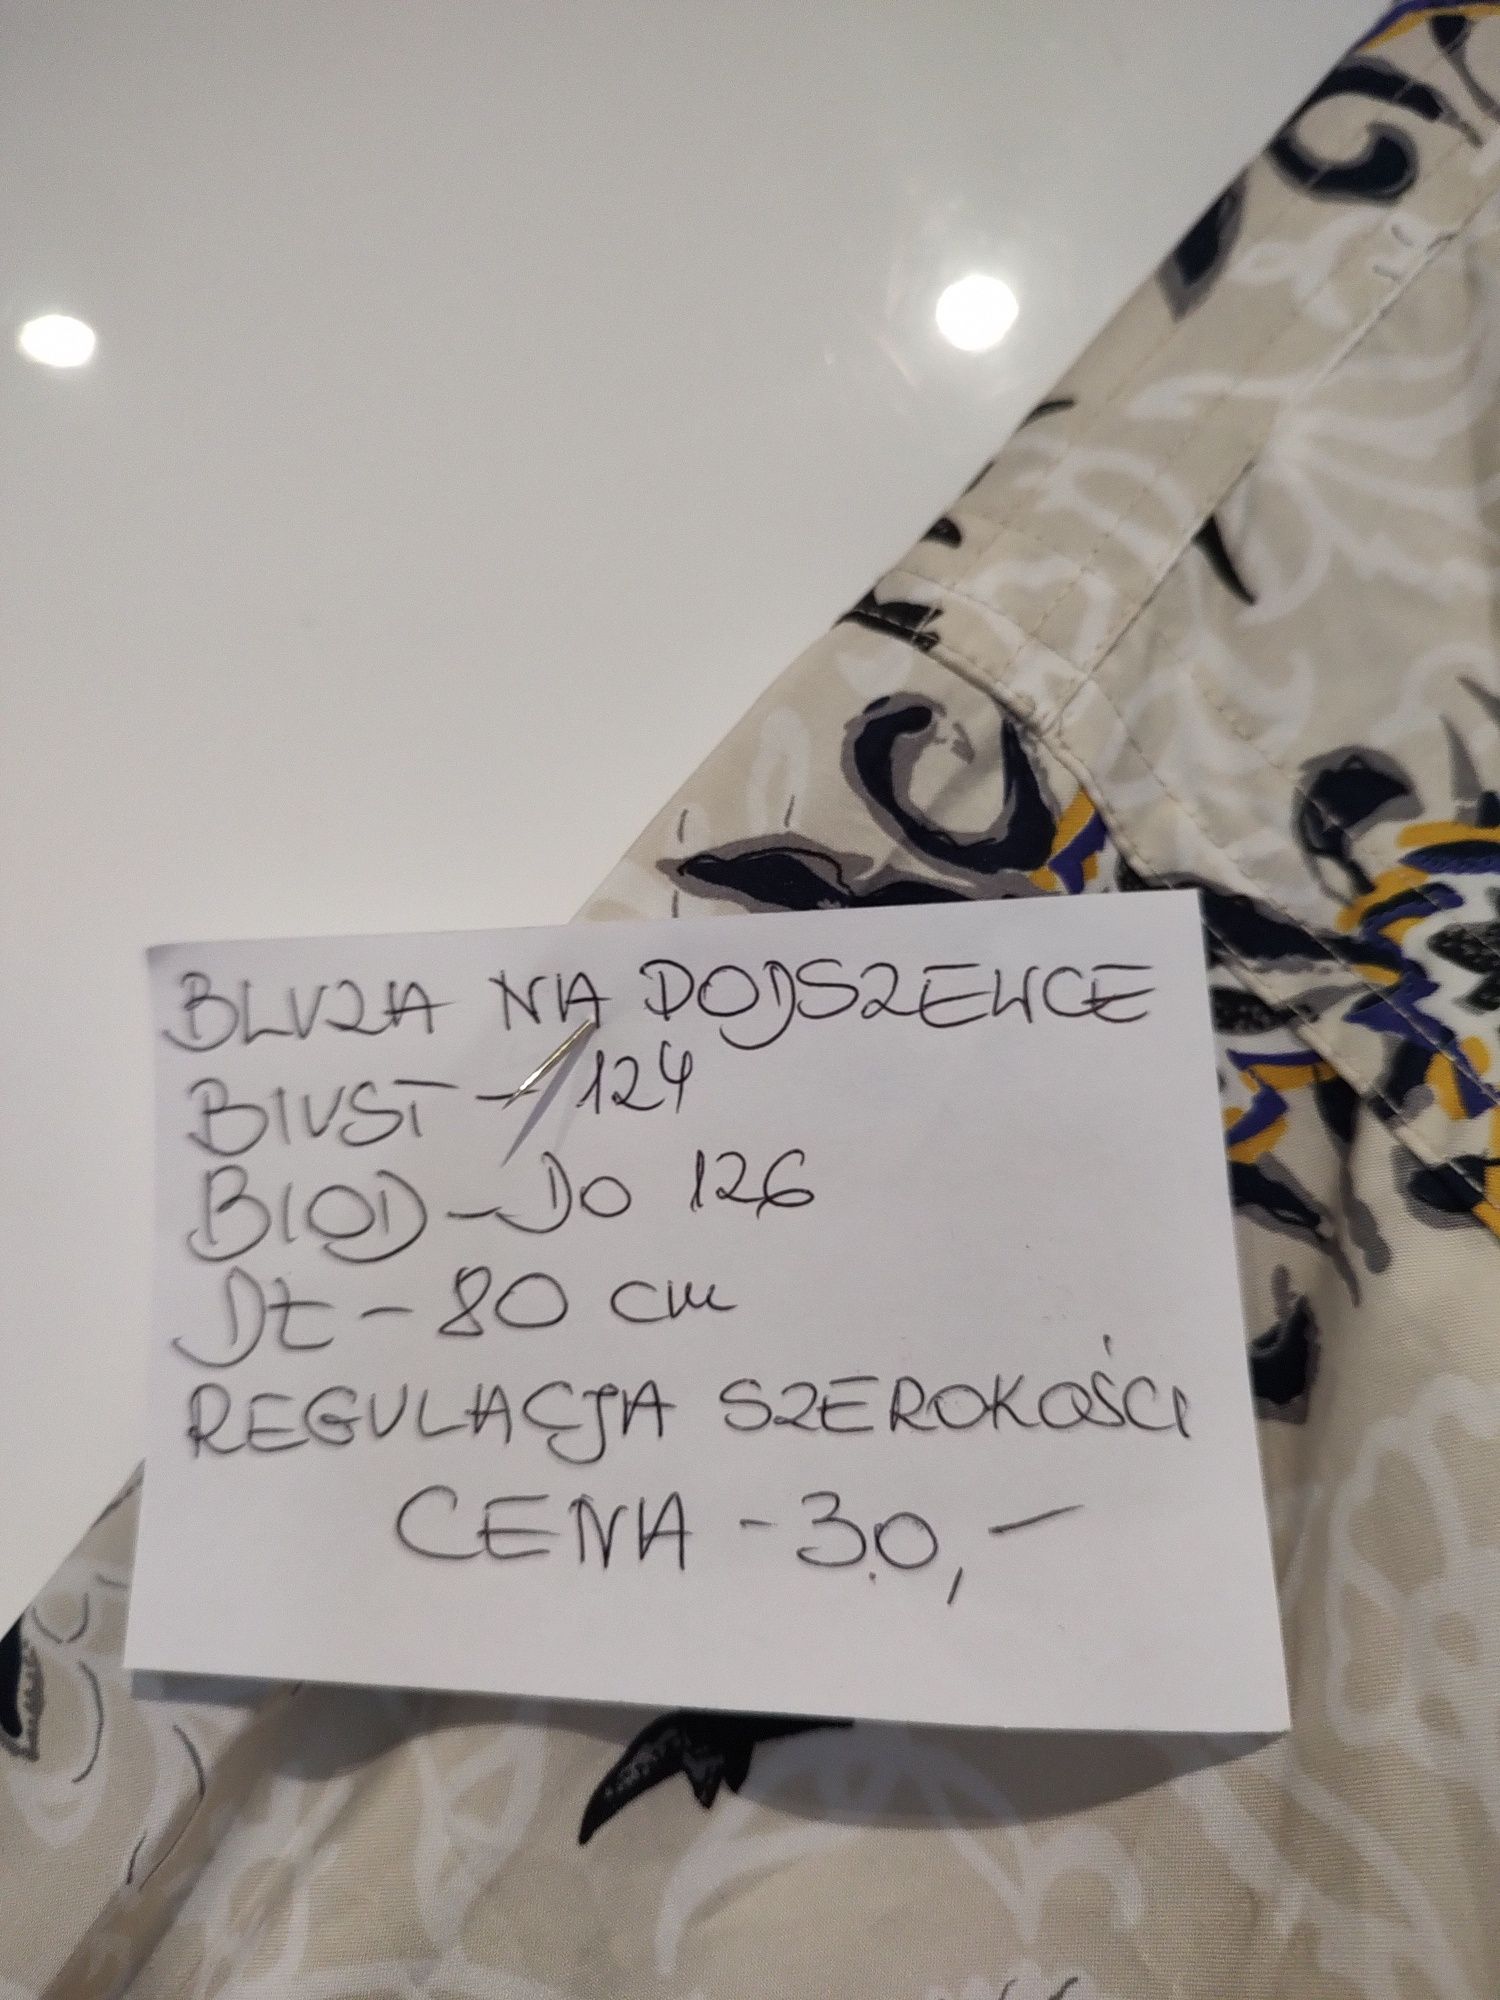 BLUZA NA PODSZEWCE
BIUST - 124
BIOD - DO 126
DŁ - 80 cm
REGULACJA SZEROKOŚCI
CENA - 30,-